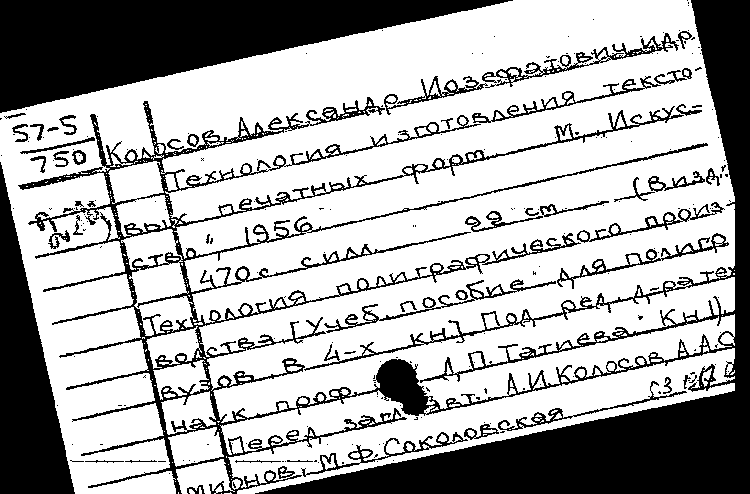 57-5
750
Колосов, Александр Иозефатович идр
Технология изготовления тексто-
вых печатных форм. М., „Искус=
ство“, 1956.
470 с. с илл. 22 cm (В изд.:
Технология полиграфического произ-
водства. [Учеб. пособие для полигр
вузов. В 4-х кн]. Под ред. д-ра тех
наук проф. Л, П. Татиева. Кн 1).
Перед загл. авт.: А.И. Колосов, А.А.
мионов, М.Ф. Соколовская